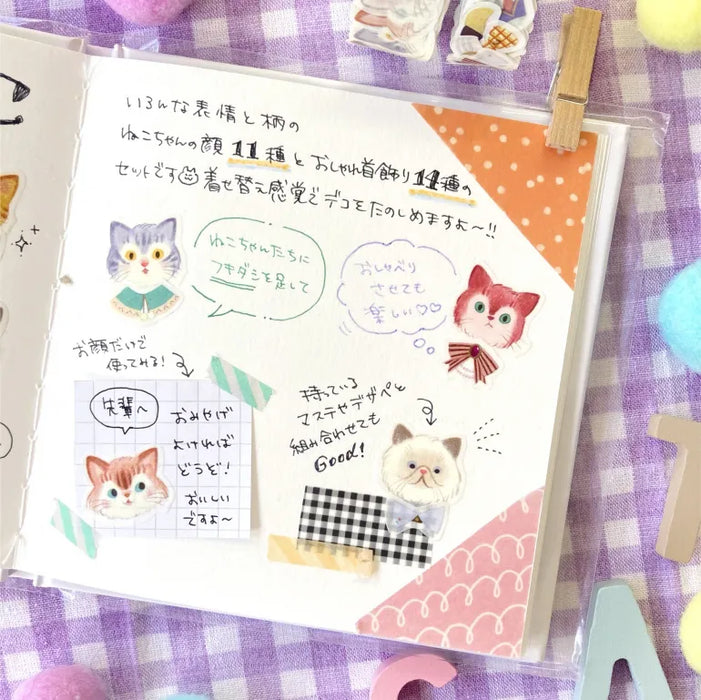 いろんな表情と柄の
ねこちゃんの顔11種とおしゃれ首飾り14種の
セットです 着せ替え感覚でデコをたのしめますよ〜!!
ねこちゃんたちに
フキダシを足して
おしゃべり
させても
楽しい♡♡
お顔だけで
使ってみる!
先輩へ
おみやげ
よければ
どうぞ!
おいしい
ですよ〜
持っている
マステやデザペと
組み合わせても
Good!
T
C
A